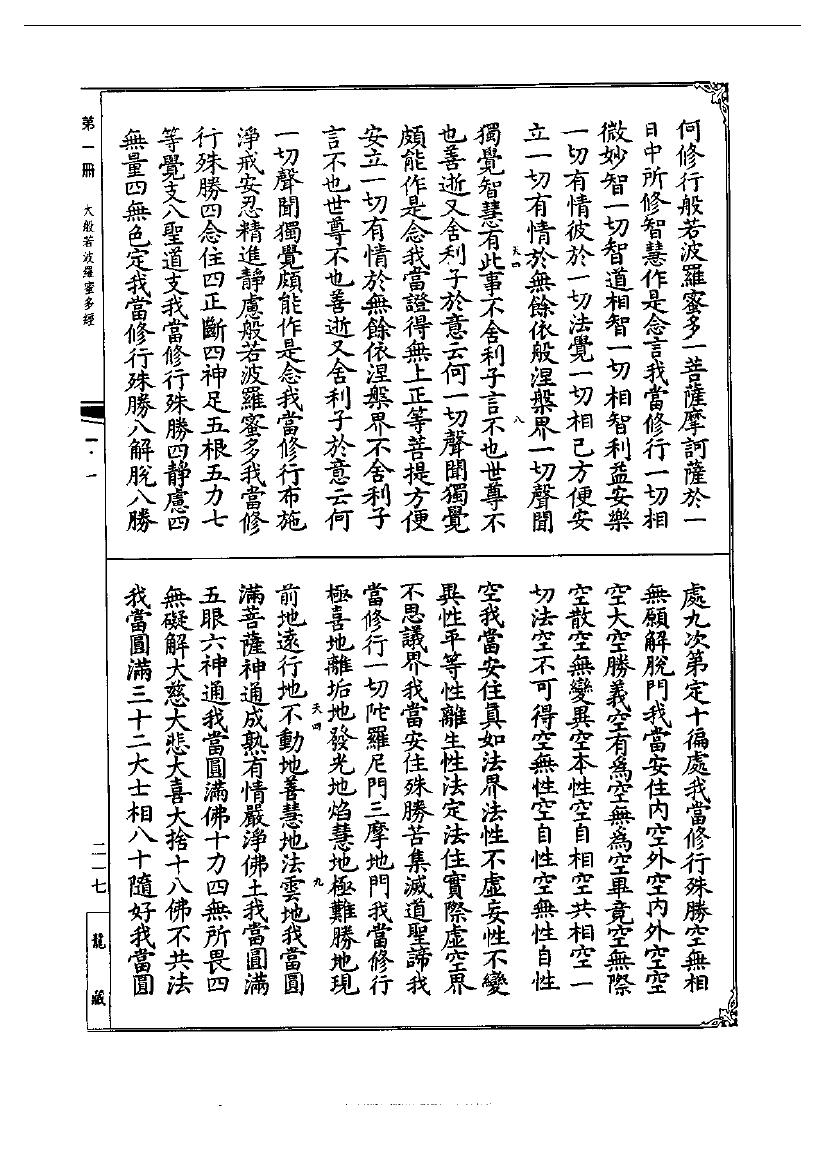 何修行般若波羅蜜多一菩薩摩訶薩於一
日中所修智慧作是念言我當修行一切相
微妙智一切智道相智一切相智利益安樂
一切有情彼於一切法覺一切相已方便安
立一切有情於無餘依般涅槃界一切聲聞
天四
八
獨覺智慧有此事不舍利子言不也世尊不
也善逝又舍利子於意云何一切聲聞獨覺
頗能作是念我當證得無上正等菩提方便
安立一切有情於無餘依涅槃界不舍利子
言不也世尊不也善逝又舍利子於意云何
一切聲聞獨覺頗能作是念我當修行布施
淨戒安忍精進靜慮般若波羅蜜多我當修
行殊勝四念住四正斷四神足五根五力七
等覺支八聖道支我當修行殊勝四靜慮四
無量四無色定我當修行殊勝八解脫八勝
處九次第定十徧處我當修行殊勝空無相
無願解脫門我當安住內空外空內外空空
空大空勝義空有為空無為空畢竟空無際
空散空無變異空本性空自相空共相空一
切法空不可得空無性空自性空無性自性
空我當安住真如法界法性不虛妄性不變
異性平等性離生性法定法住實際虛空界
不思議界我當安住殊勝苦集滅道聖諦我
當修行一切陀羅尼門三摩地門我當修行
極喜地離垢地發光地焰慧地極難勝地現
天四
九
前地遠行地不動地善慧地法雲地我當圓
滿菩薩神通成熟有情嚴淨佛土我當圓滿
五眼六神通我當圓滿佛十力四無所畏四
無礙解大慈大悲大喜大捨十八佛不共法
我當圓滿三十二大士相八十隨好我當圓
第一冊 大般若波羅蜜多經
一·一
二一七
龍藏